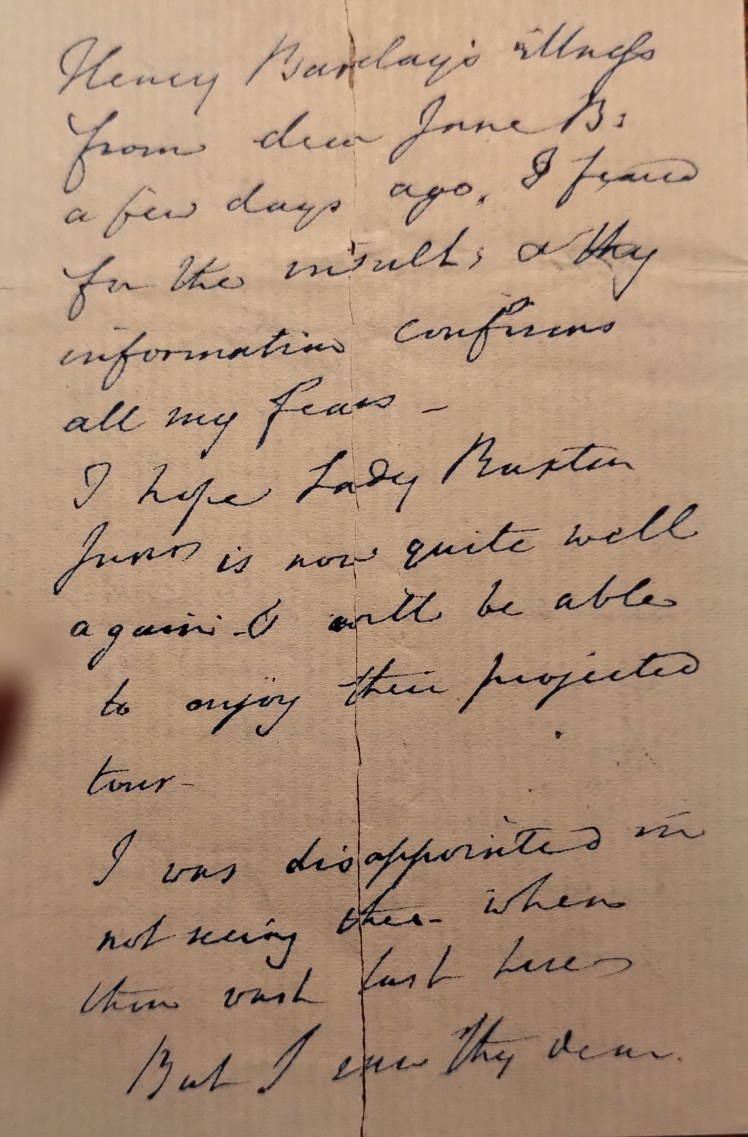 Henry Barclay's illness
from dear Jane B:
a few days ago. I feared
for the result; & thy
information confirms
all my fears –
I hope Lady Buxton
Junr is now quite well
again – & will be able
to enjoy their projected
tour –
I was disappointed in
not seeing thee – when
thou wast last here
But I saw thy dear